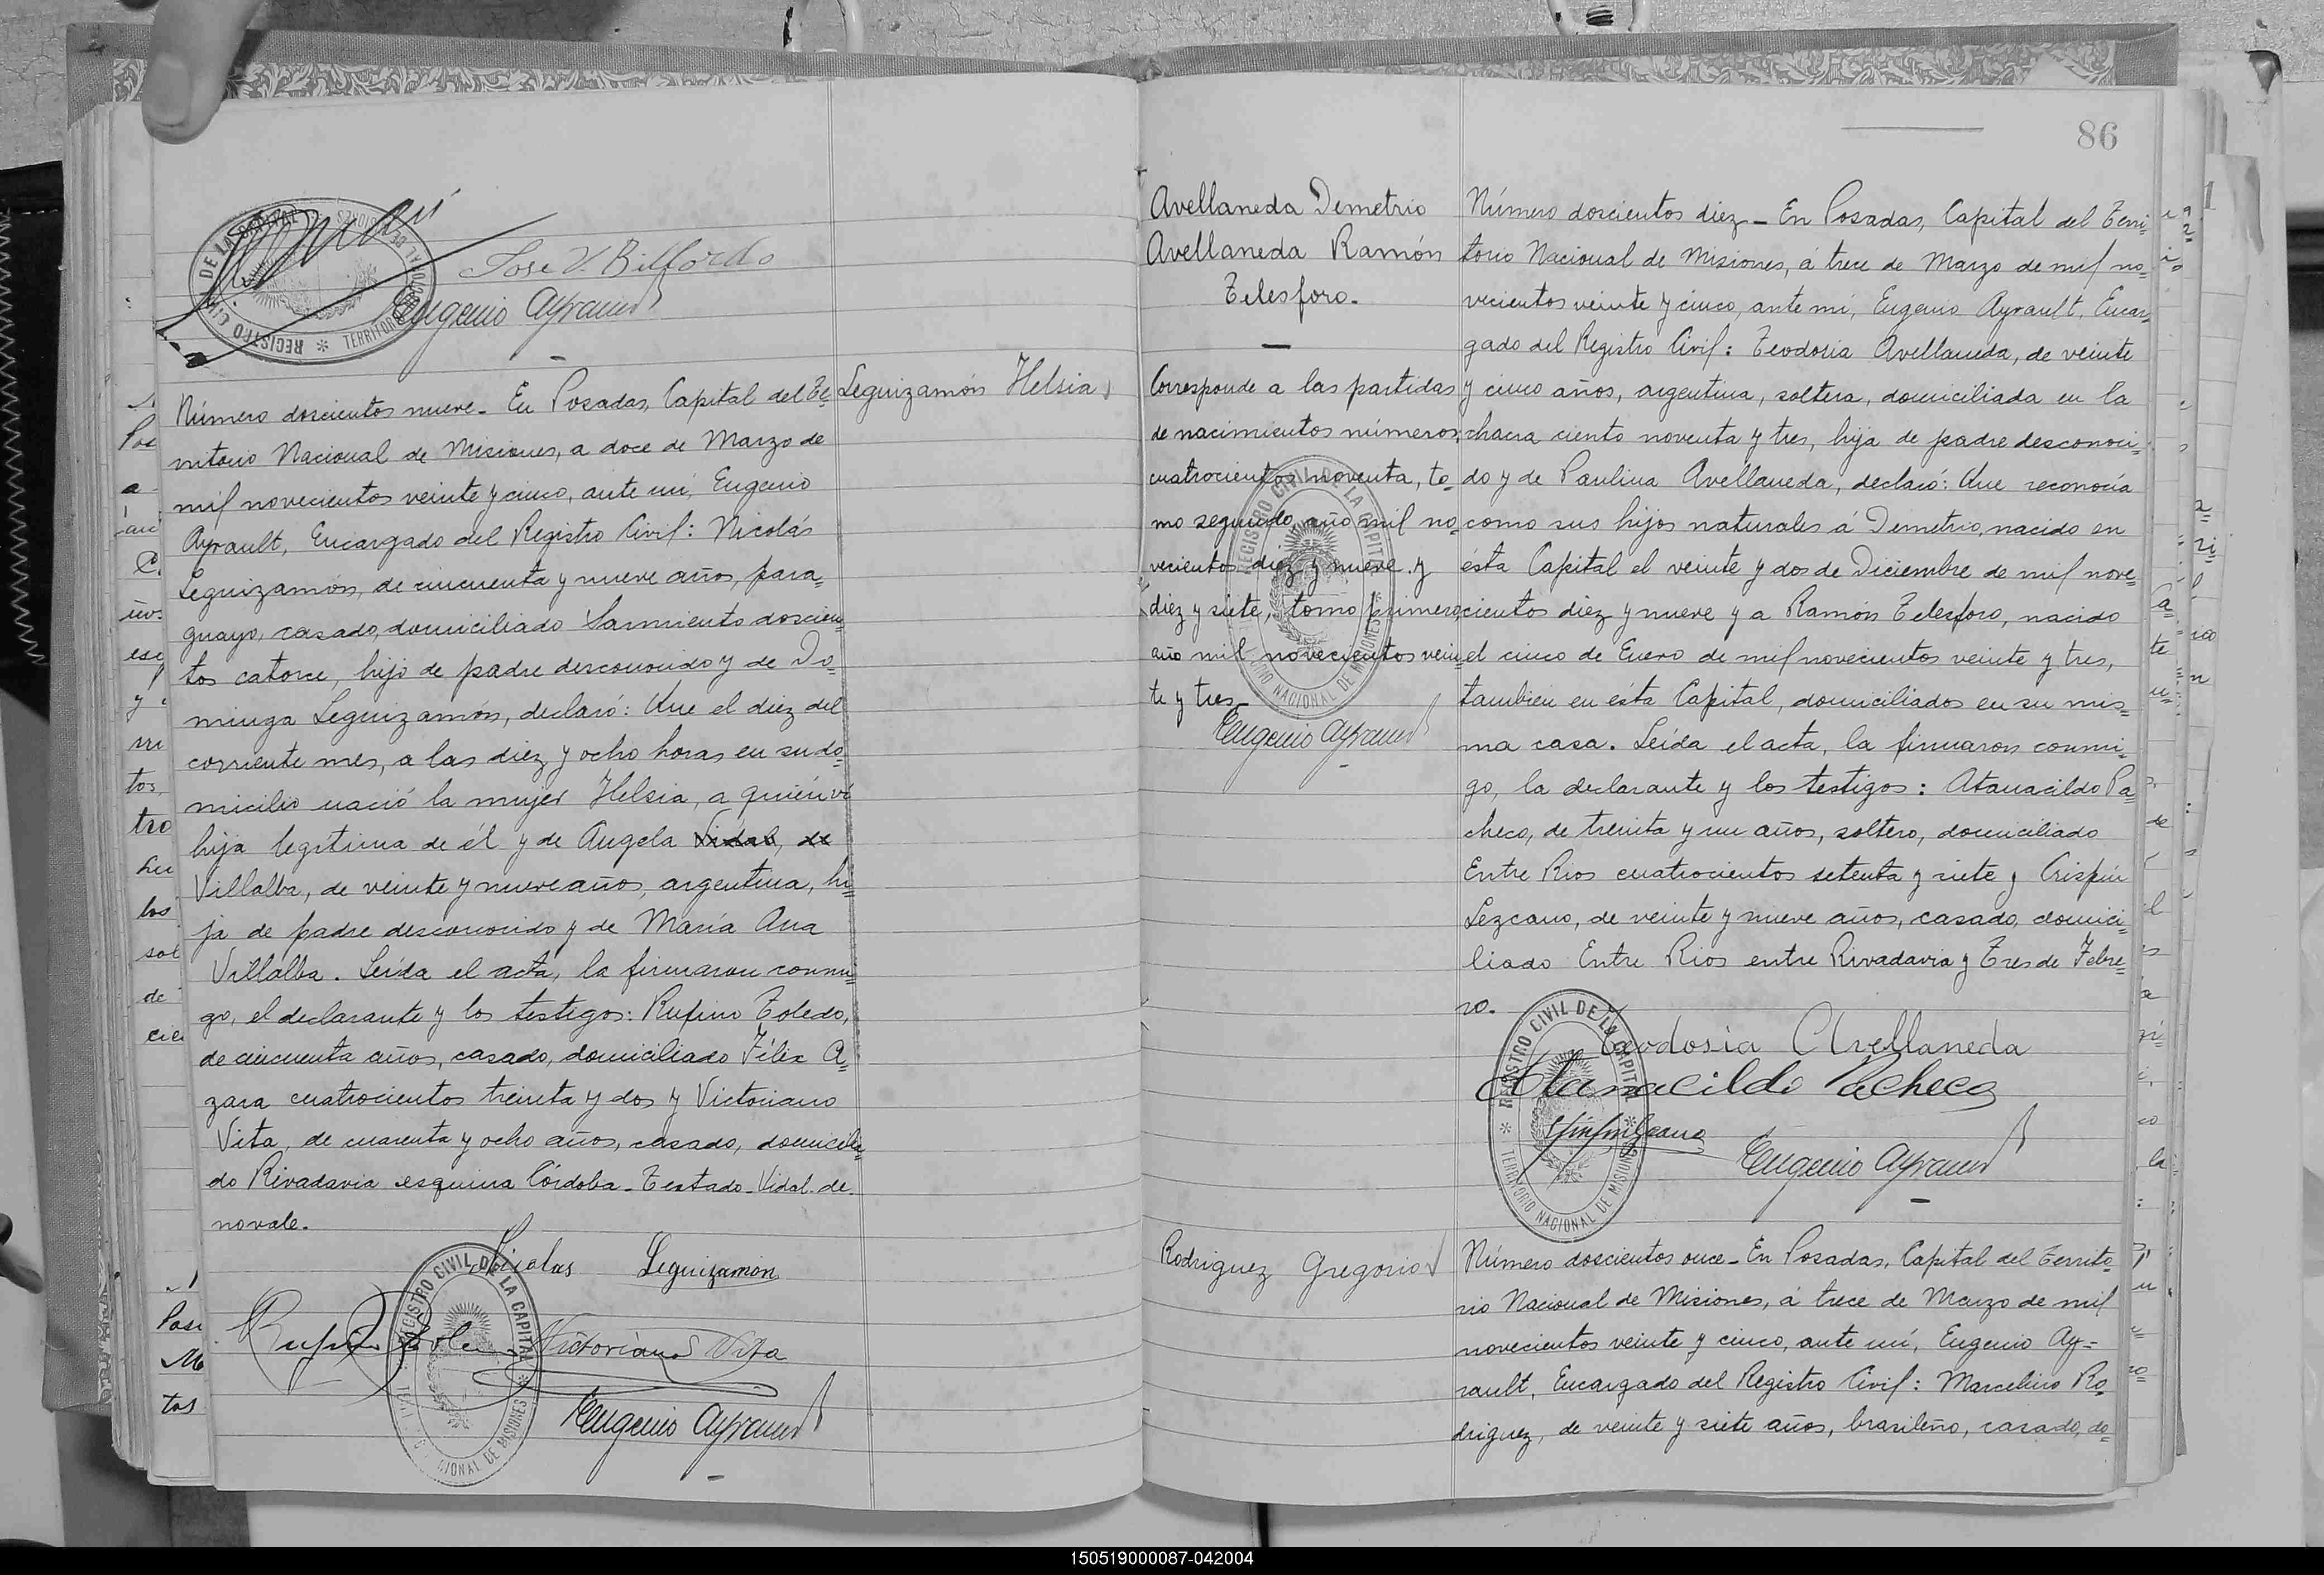 José V. Billordo
Eugenio Ayrault
Leguizamón Helsia
Número doscientos nueve - En Posadas, Capital del Te-
rritorio Nacional de Misiones, a doce de Marzo de
mil novecientos veinte y cinco, ante mí, Eugenio
Ayrault, Encargado del Registro Civil: Nicolás
Leguizamón, de cincuenta y nueve años, para-
guayo, casado, domiciliado Sarmiento doscien-
tos catorce, hijo de padre desconocido y de Do-
minga Leguizamón, declaró: Que el diez del
corriente mes, a las diez y ocho horas en su do-
micilio nació la mujer Helsia, a quién vi
hija legítima de él y de Angela Vidal, de
Villalba, de veinte y nueve años, argentina, hi-
ja de padre desconocido y de María Ana
Villalba. Leída el acta, la firmaron conmi-
go, el declarante y los testigos: Rufino Toledo,
de cincuenta años, casado, domiciliado Félix A-
zara cuatrocientos treinta y dos y Victoriano
Vita, de cuarenta y ocho años, casado, domicilia-
do Rivadavia esquina Córdoba - Testado - Vidal. de -
no vale.
Nicolas Leguizamon
Rufino Toledo Victoriano Vita
Eugenio Ayrault
REGISTRO CIVIL DE LA CAPITAL
86
Avellaneda Demetrio
Avellaneda Ramón
Telesforo.
Corresponde a las partidas
de nacimientos números:
cuatrocientos noventa, to-
mo segundo año mil no-
vecientos diez y nueve y
diez y siete, tomo primero,
año mil novecientos vein-
te y tres -
Eugenio Ayrault
REGISTRO CIVIL DE LA CAPITAL * TERRITORIO NACIONAL DE MISIONES *
Número doscientos diez - En Posadas, Capital del Terri-
torio Nacional de Misiones, á trece de Marzo de mil no-
vecientos veinte y cinco, ante mí, Eugenio Ayrault, Encar-
gado del Registro Civil: Teodosia Avellaneda, de veinte
y cinco años, argentina, soltera, domiciliada en la
chacra ciento noventa y tres, hija de padre desconoci-
do y de Paulina Avellaneda, declaró: Que reconocía
como sus hijos naturales á Demetrio, nacido en
ésta Capital el veinte y dos de Diciembre de mil nove-
cientos diez y nueve y a Ramón Telesforo, nacido
el cinco de Enero de mil novecientos veinte y tres,
tambien en ésta Capital, domiciliados en su mis-
ma casa. Leída el acta, la firmaron conmi-
go, la declarante y los testigos: Atanacildo Pa-
checo, de treinta y un años, soltero, domiciliado
Entre Rios cuatrocientos setenta y siete y Crispín
Lezcano, de veinte y nueve años, casado, domici-
liado Entre Rios entre Rivadavia y Tres de Febre-
ro.
Teodosia Avellaneda
Atanacildo Pacheco
Eugenio Ayrault
REGISTRO CIVIL DE LA CAPITAL * TERRITORIO NACIONAL DE MISIONES *
Rodriguez Gregorio
Número doscientos once - En Posadas, Capital del Territo-
rio Nacional de Misiones, á trece de Marzo de mil
novecientos veinte y cinco, ante mí, Eugenio Ay-
rault, Encargado del Registro Civil: Marcelino Ro-
driguez, de veinte y siete años, brasileño, casado, do-
150519000087-042004